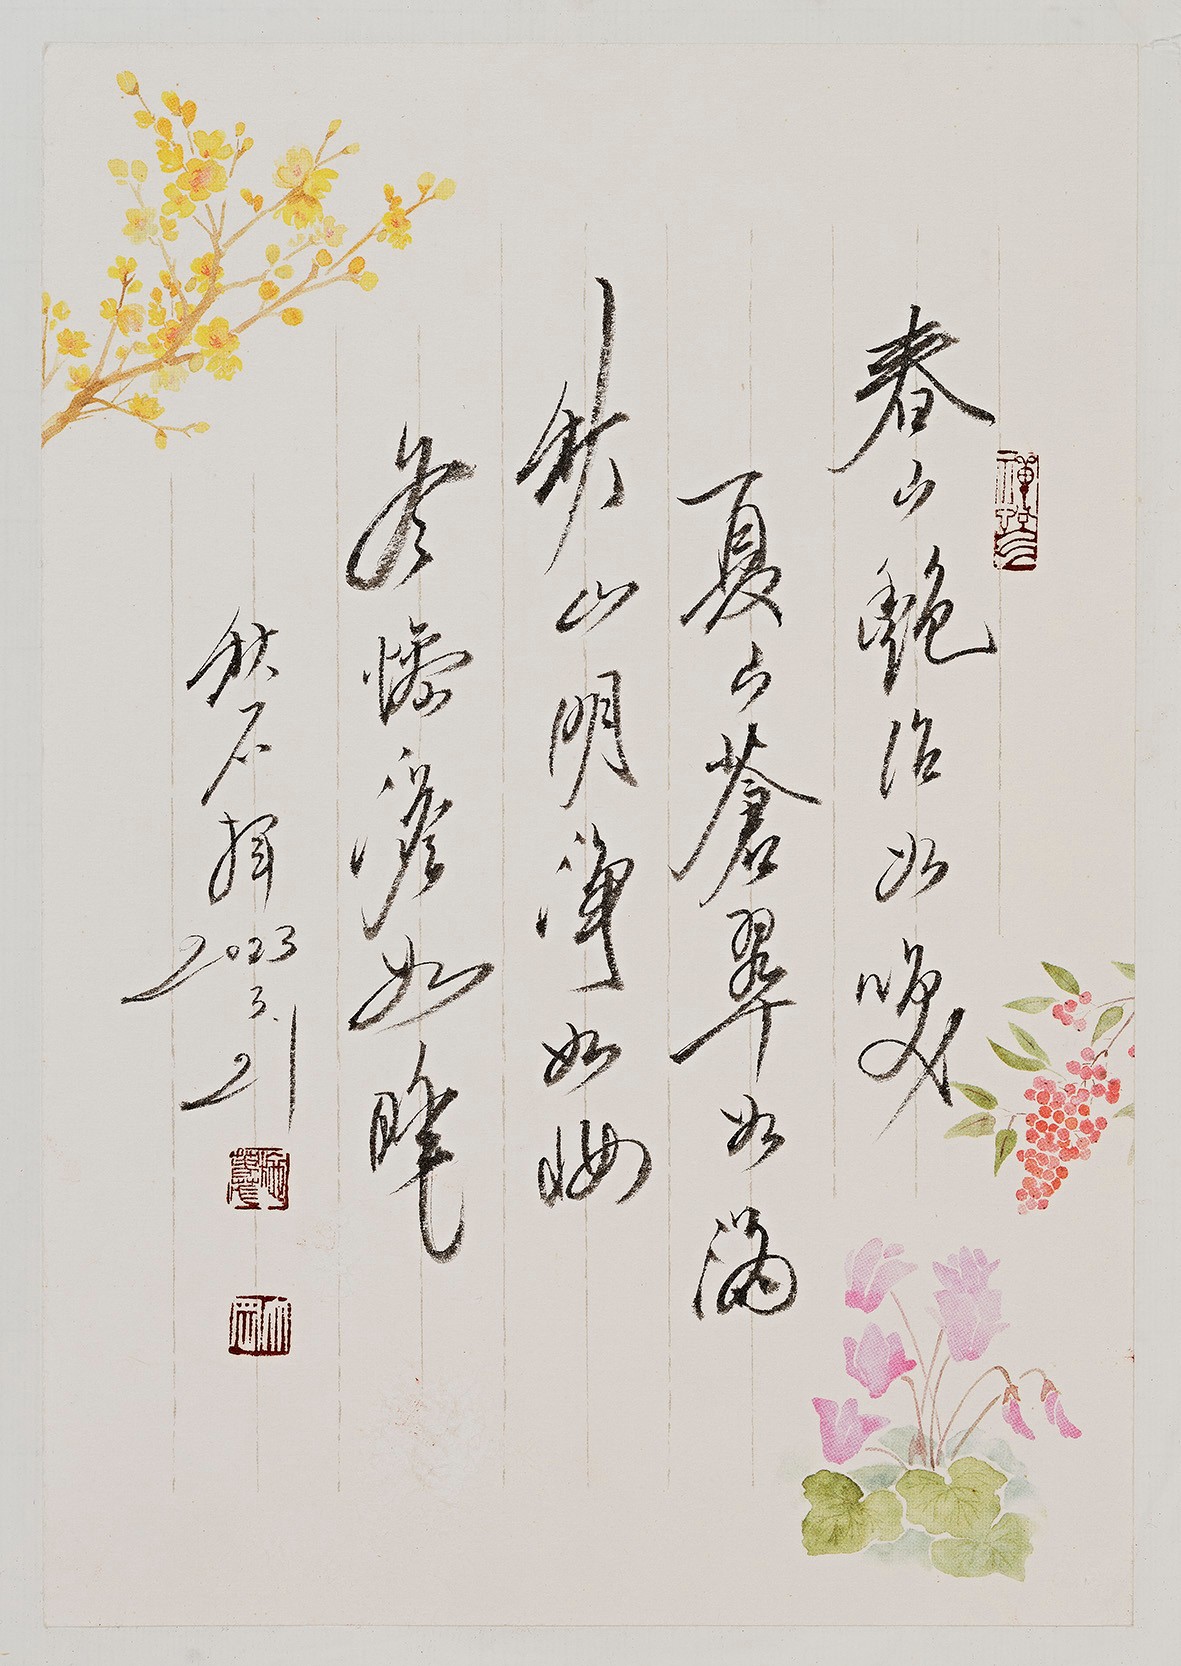 春山艷冶如咲
夏山蒼翠如滴
秋山明淨如妝
冬慘澹如睡
秋石揮
2023
3.21